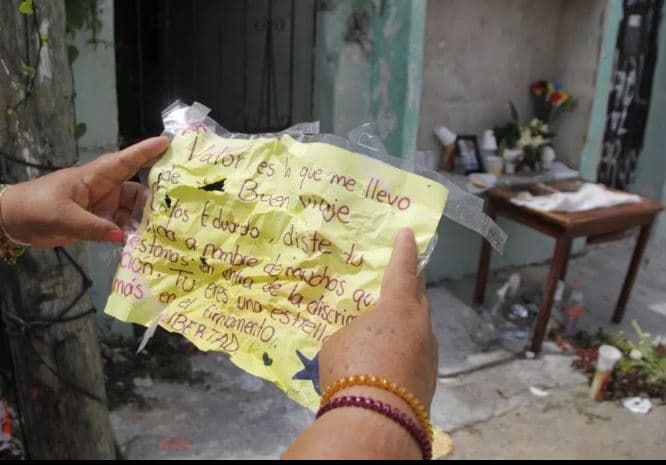 Valor es lo que me llevo
de Buen viaje
Eduardo, diste tu
a nombre de muchos que
en de la discrim
Tu eres una estrella
más en el firmamento.
LIBERTAD